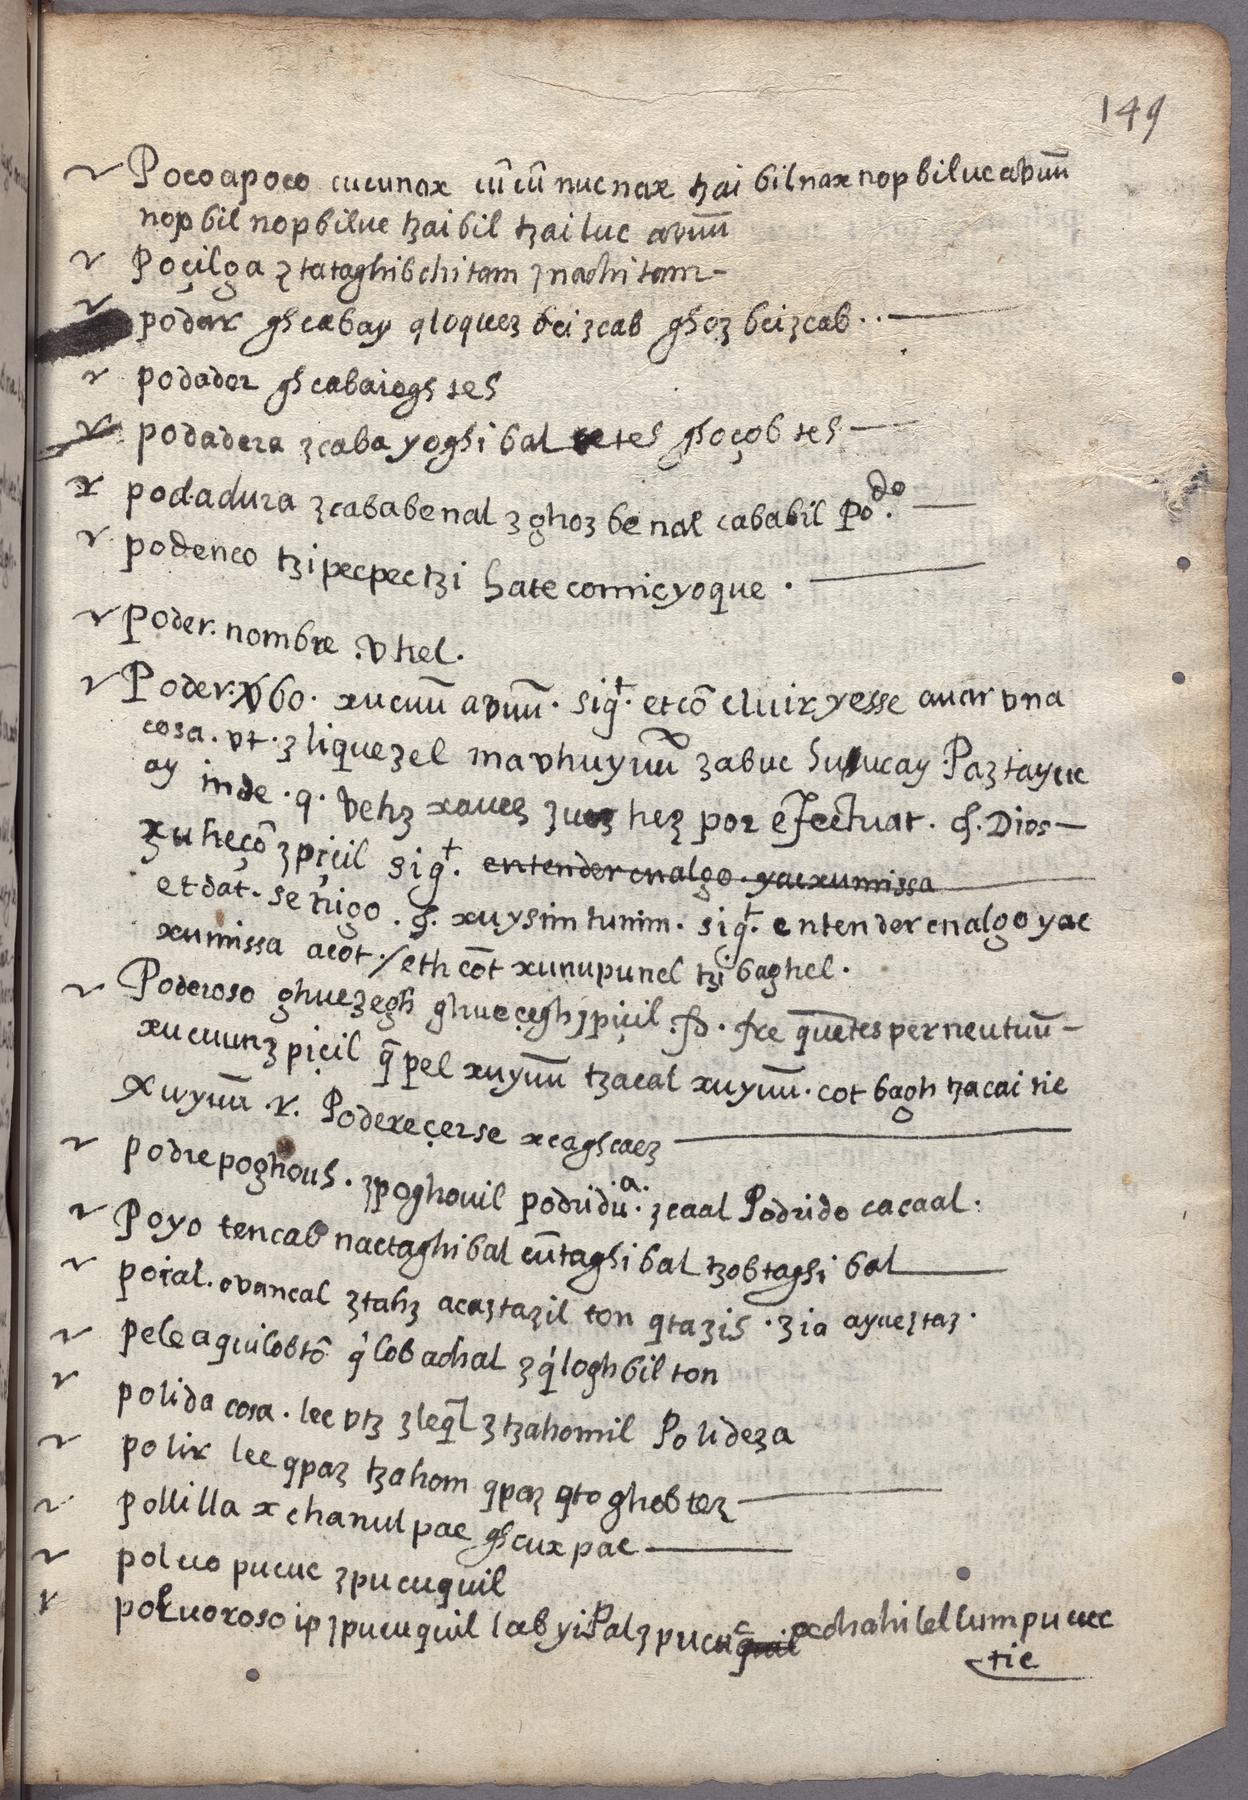 149
Poco apoco cucunax cûcû nucnax tzai bilnax nop biluc avuū
nop bil nop biluc tzai bil tzai luc avuū
Poçilga ztataghibchitam znachitam-
podar ghcabay qloquez bei zcab ghoz beizcab..
podador ghcabaiogh teh
podadera zcaba yoghi bal teteh ghoçob teh
podadura zcababenal z ghoz be nal cababil Podo.
podenco tzi pecpec tzi hate comiçyoque.
Poder. nombre .vhel.
Poder. vbo. xucuū avuū. sigt. etcō cluir yesse auar vna
cosa. vt. z liquezel mavhuyuū zabuc huucay Paztayuc
ay inde .q. vehz xauez zuez hez por efectuar. f. Dios
zu heçō zpiçil sigt. entender enalgo. yaexumissa
etdat. señigo. f. xuysim tunim. sigt. entender enalgo yae
xumissa acot./eth cōt xunupunel tzi baghel.
Poderoso ghuezegh ghueçeghzpiçil .fd. fre quētes per neutuū-
xucuunz piçil q̄ pel xuyuū tzacal xuyuū. cot bagh tzacai tie
Xuyuū .r. Poderecerse xcaghcaez
podre poghouh. zpoghouil podridua. zcaal Podrido cacaal.
Poyo tencab nactaghibal cūtaghi bal tzobtaghi bal
poial. ovancal ztahz acaztazil ton qtazis. zia ayueztaz.
pelea quilobtō q'lobachal z q'loghbil ton
polida cosa. lec vtz zleql z tzahomil Polideza
polir lec qpaz tzahom qpaz qto ghobtez
polilla x chanul pac ghcux pac
poluo pucuc zpucuquil
poluoroso ip zpucuquil lab yipalz pucuquil xchahilel lum pucuc
tie